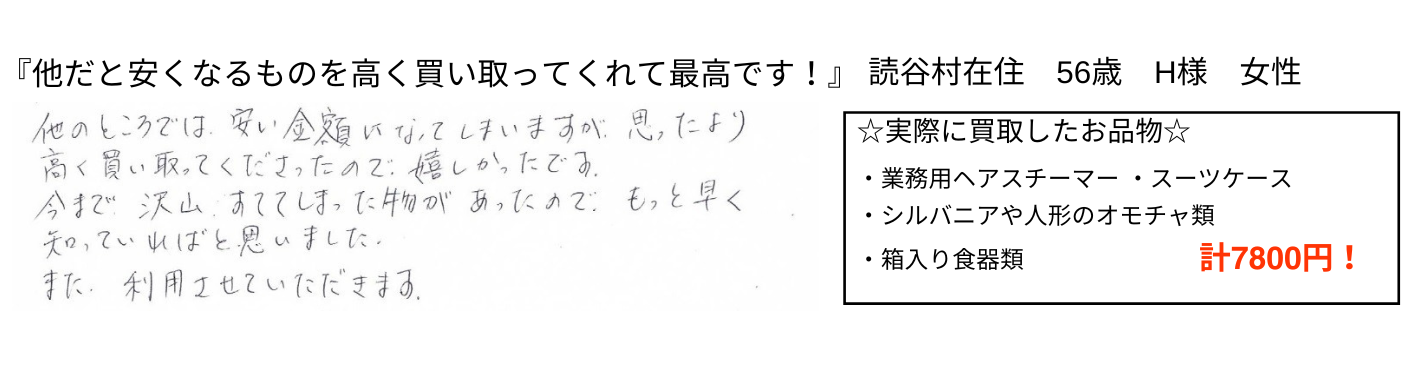 『他だと安くなるものを高く買い取ってくれて最高です！』 読谷村在住　56歳　H様　女性
他のところでは、安い金額になってしまいますが、思ったより
高く買い取ってくださったので、嬉しかったです。
今まで、沢山、すててしまった物があったので、もっと早く
知っていればと思いました。
また、利用させていただきます。
☆実際に買取したお品物☆
・業務用ヘアスチーマー ・スーツケース
・シルバニアや人形のオモチャ類
・箱入り食器類
計7800円！